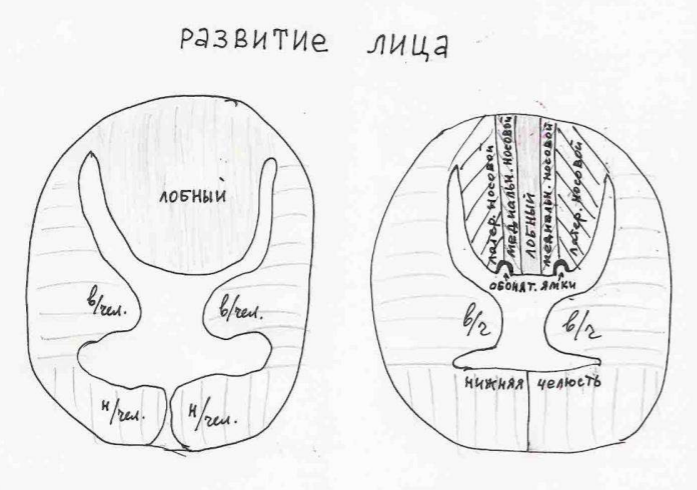 РАЗВИТИЕ ЛИЦА
ЛОБНЫЙ
в/чел. в/чел.
н/чел. н/чел.
латер. носовой
медиальн. носовой
ЛОБНЫЙ
медиальн. носовой
латер. носовой
ОБОНЯТ. ЯМКИ
в/ч в/ч
НИЖНЯЯ ЧЕЛЮСТЬ